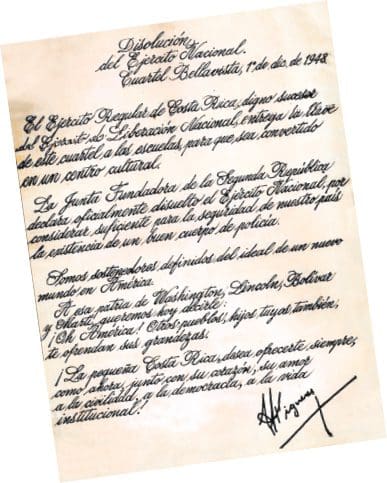 Disolución
del Ejército Nacional.
Cuartel Bellavista, 1º de dic. de 1948
El Ejército Regular de Costa Rica, digno sucesor
del Ejército de Liberación Nacional, entrega la llave
de este cuartel a las escuelas, para que sea convertido
en un centro cultural.
La Junta Fundadora de la Segunda República
declara oficialmente disuelto el Ejército Nacional, por
considerar suficiente para la seguridad de nuestro país
la existencia de un buen cuerpo de policía.
Somos sostenedores definidos del ideal de un nuevo
mundo en América.
A esa patria de Washington, Lincoln, Bolívar
y Martí, queremos hoy decirle:
¡Oh América! Otros pueblos, hijos tuyos también,
te ofrendan sus grandezas.
¡La pequeña Costa Rica, desea ofrecerte siempre,
como ahora, junto con su corazón, su amor
a la civilidad, a la democracia, a la vida
institucional!